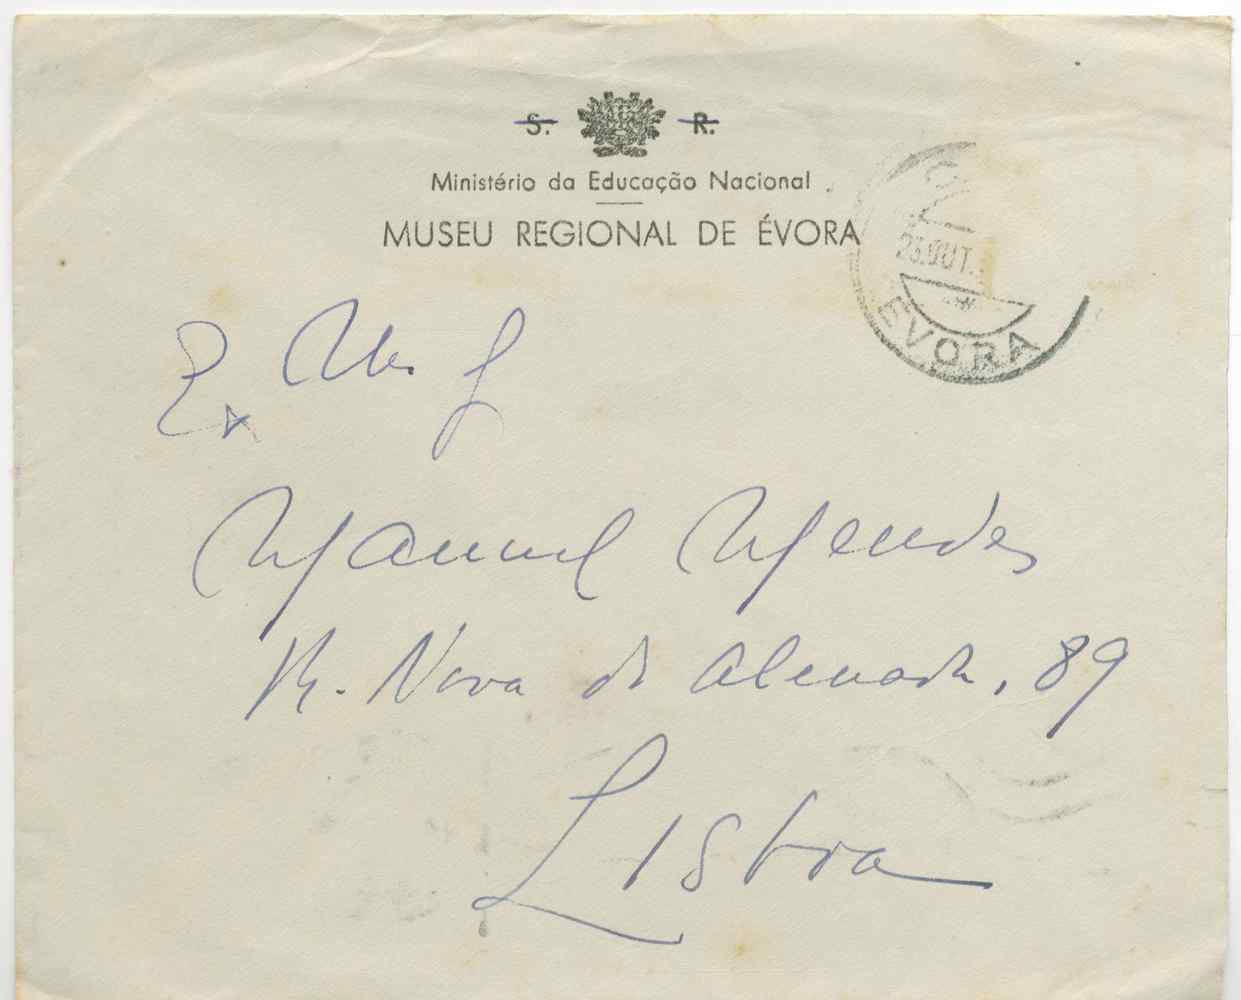 S. R.
Ministério da Educação Nacional
MUSEU REGIONAL DE ÉVORA
23.OUT.
EVORA
Ex
Manuel Mendes
R. Nova do Almada, 89
Lisboa